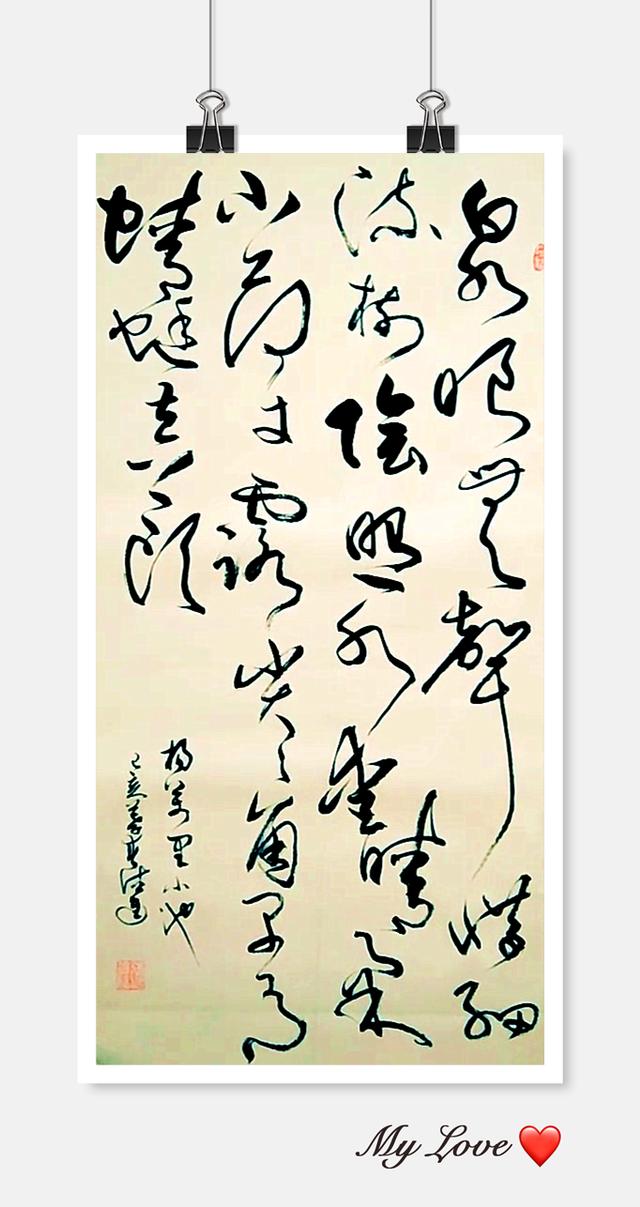 泉眼無聲惜細
流樹陰照水愛晴柔
小荷才露尖尖角早有
蜻蜓立上頭
楊萬里小池
己亥
My Love ❤️